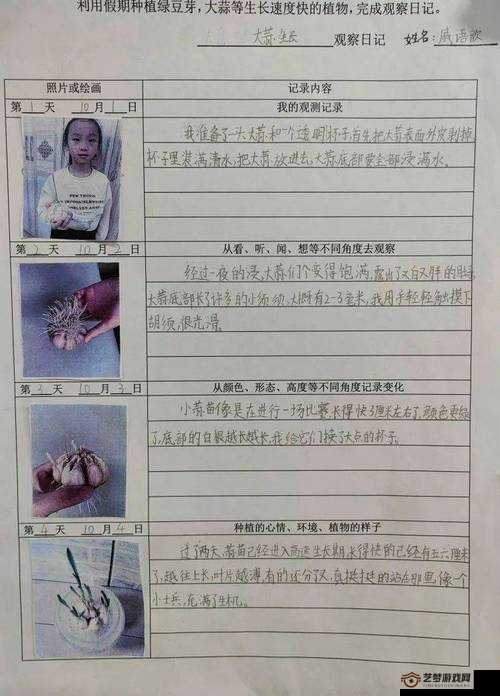 利用假期种植绿豆芽，大蒜等生长速度快的植物，完成观察日记。
大蒜生长 观察日记 姓名：戚语歆
照片或绘画 记录内容
第1天 10月1日 我的观测记录
我准备了一头大蒜和一个透明杯子，首先把大蒜表面外皮剥掉，
杯子里装满清水，把大蒜放进去，大蒜底部要全部浸满水。
第2天 10月2日 从看、听、闻、想等不同角度去观察
经过一夜的浸，大蒜们个变得饱满，露出了又白又胖的肚
大蒜底部长了许多的小须须，大概有2-3毫米，我用手轻轻触摸下
胡须，很光滑。
第3天 10月3日 从颜色、形态、高度等不同角度记录变化
小蒜苗像是在进行一场比赛长得快3厘米左右了，颜色更绿
了，底部的白根越长越长，我给它们换了大点的杯子。
第4天 10月4日 种植的心情、环境、植物的样子
过了两天，蒜苗已经进入高速生长期，长得快的已经有五六厘米
了，越往上长，叶片越薄，有的还分了叉，直挺挺的站在那里像一个
小士兵，充满了生机。
艺梦游戏网